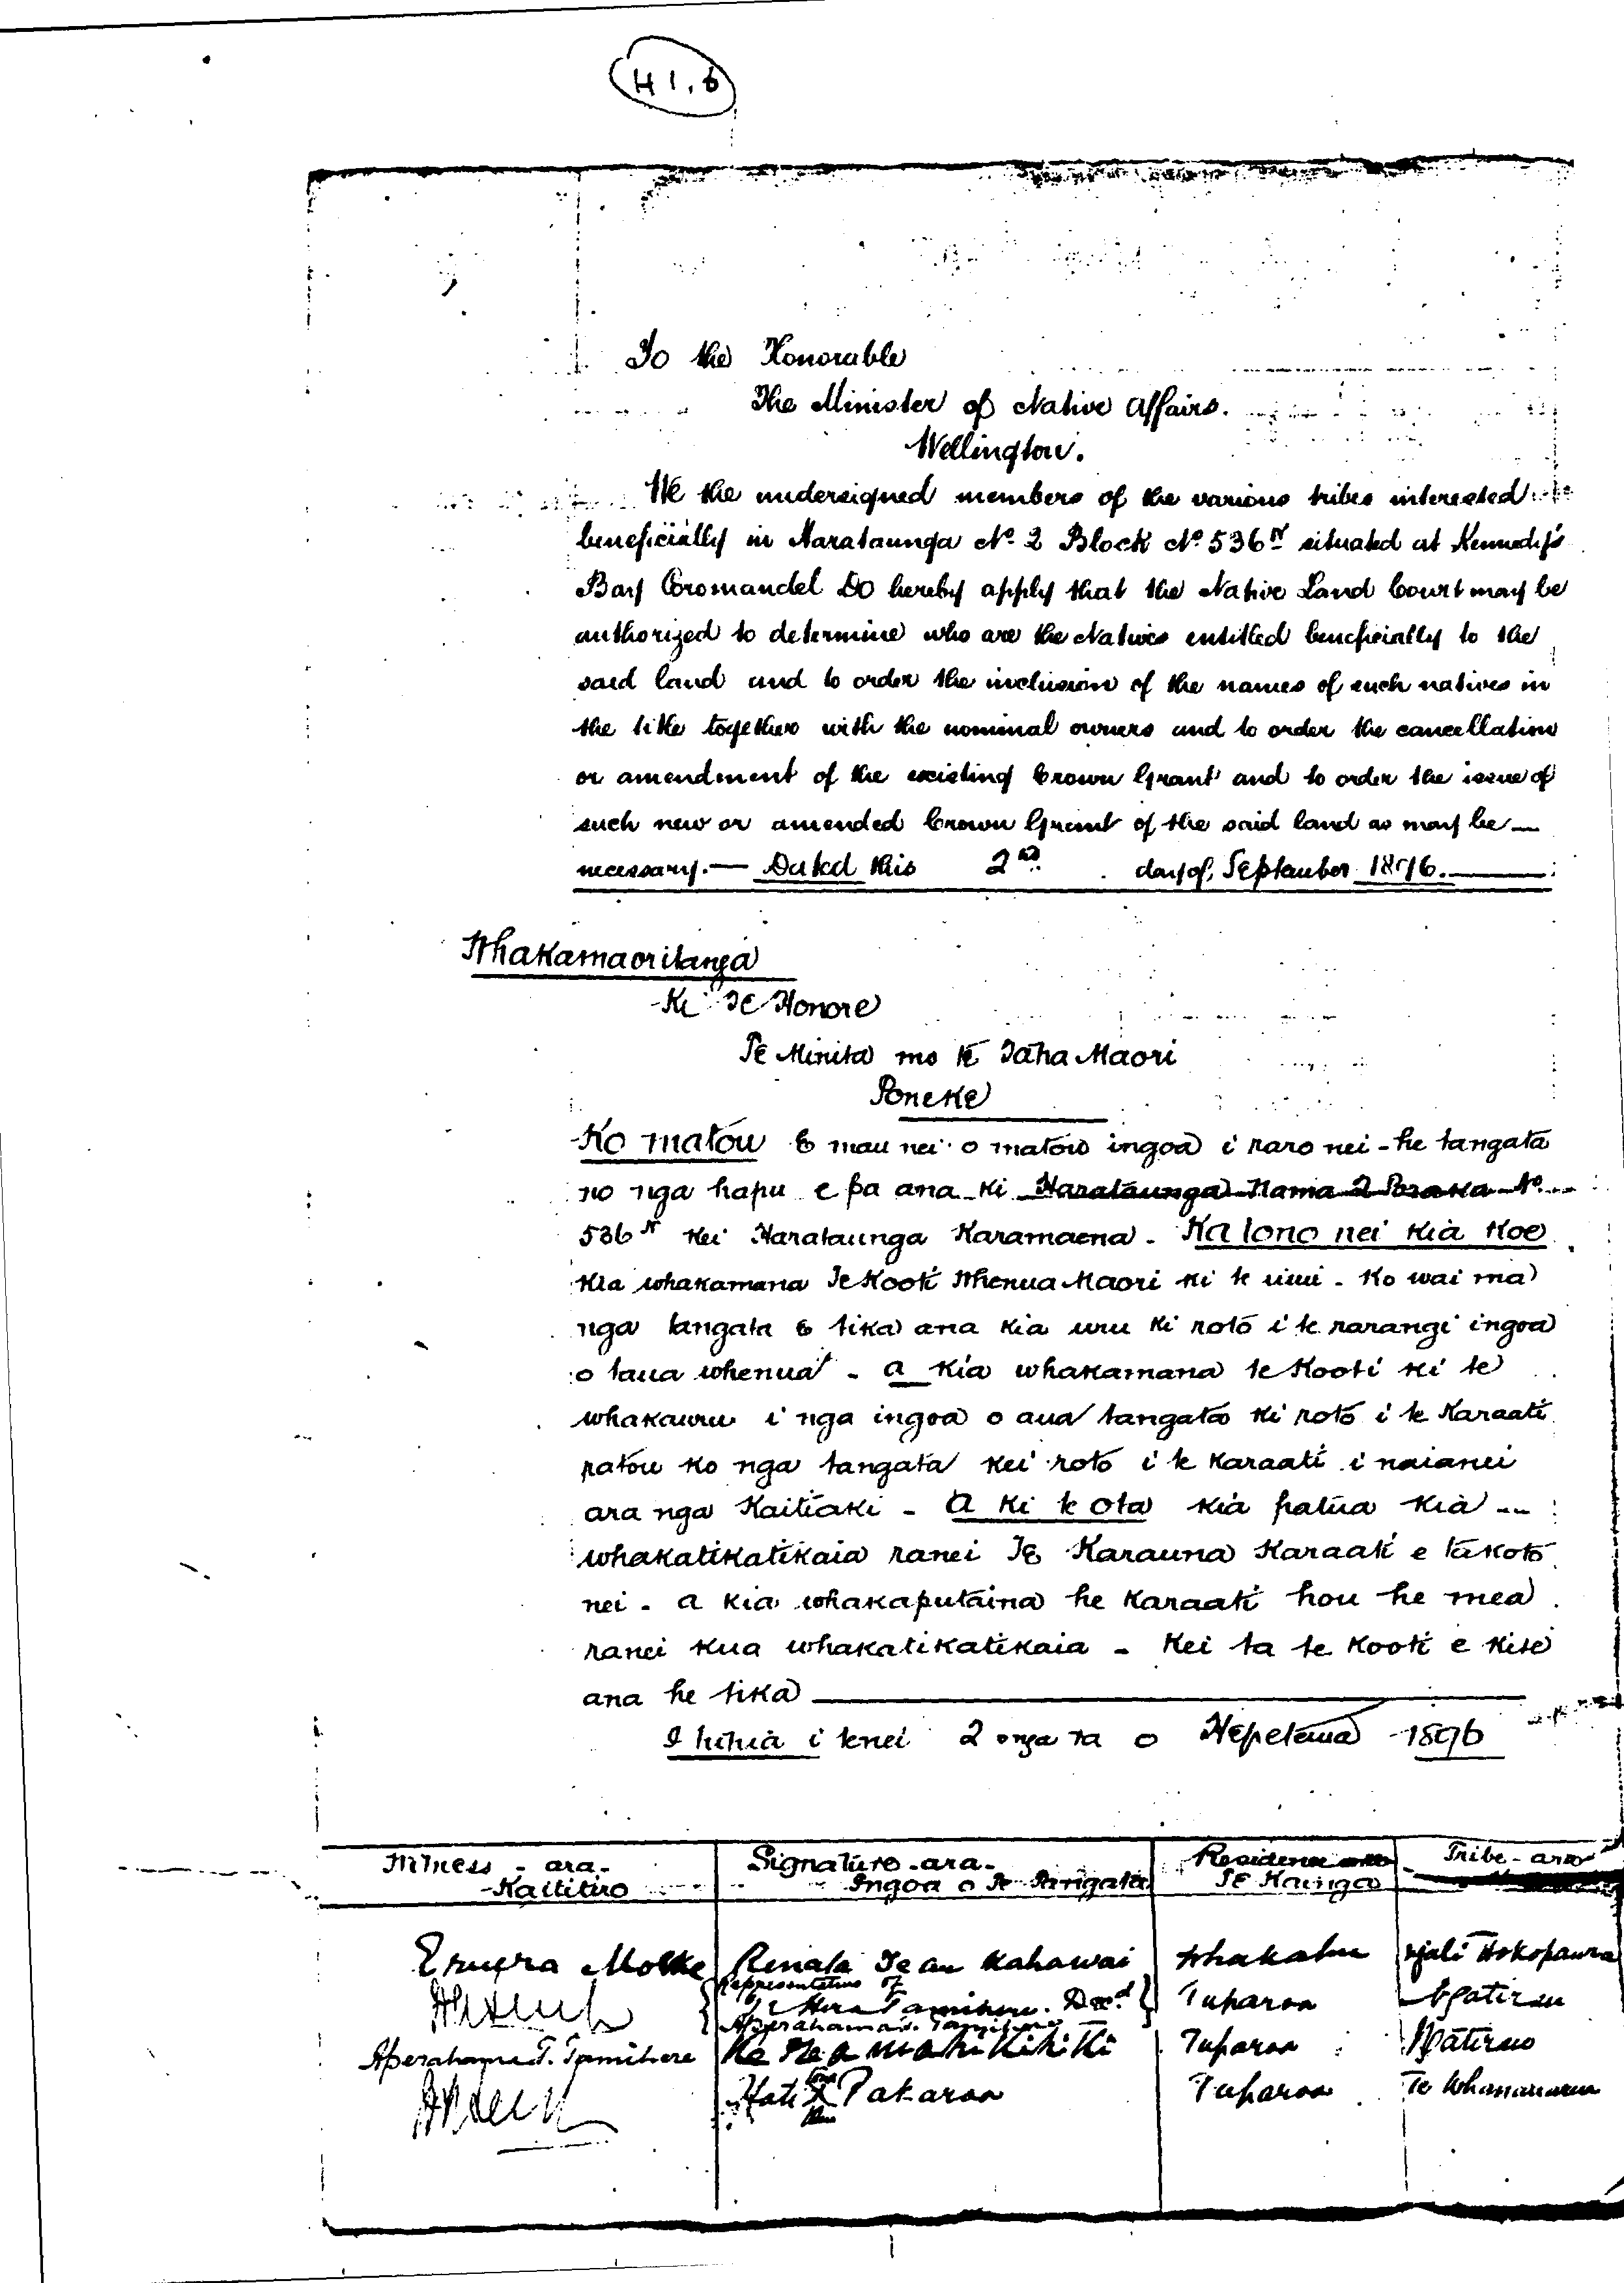 H1.6
To the Honorable
The Minister of Native Affairs.
Wellington.
We the undersigned members of the various tribes interested
beneficially in Harataunga No. 2 Block No. 536N situated at Kennedy's
Bay Coromandel Do hereby apply that the Native Land Court may be
authorized to determine who are the Natives entitled beneficially to the
said land and to order the inclusion of the names of such natives in
the title together with the nominal owners and to order the cancellation
or amendment of the existing Crown Grant and to order the issue of
such new or amended Crown Grant of the said land as may be —
necessary. — Dated this 2nd day of, September 1896.
Whakamaoritanga
Ki Te Honore
Te Minita mo te Taha Maori
Poneke
Ko matou E mau nei o matou ingoa i raro nei - he tangata
no nga hapu e pa ana ki Harataunga Nama 2 Poraka No.
536N Kei Harataunga Karamaena - Ka tono nei kia Koe
Kia whakamana Te Kooti Whenua Maori ki te uiui - Ko wai ma
nga tangata E tika ana kia uru ki roto i te rarangi ingoa
o taua whenua - a kia whakamana te Kooti ki te
whakauru i nga ingoa o aua tangata ki roto i te Karaati
ratou ko nga tangata kei roto i te Karaati i naianei
ara nga Kaitiaki - A ki te ota kia patua kia —
whakatikatikaia ranei Te Karauna Karaati e takoto
nei - a kia whakaputaina he Karaati hou he mea
ranei kua whakatikatikaia - Kei ta te Kooti e kite
ana he tika
I tuhia i tenei 2 o nga ra o Hepetema 1896
Witness - ara - Signature - ara - Residence Tribe - ara
Kaititiro Ingoa o te Tangata Te Kainga
Eruera Renata Te au Kahawai Whakatu
Representative of
Tamihere. Decd Tuparoa Ngatirau
Aperahama T. Tamihere
Aperahama T. Tamihere Tuparoa Ngatirau
Hati Pakaroa Tuparoa Te Whanau